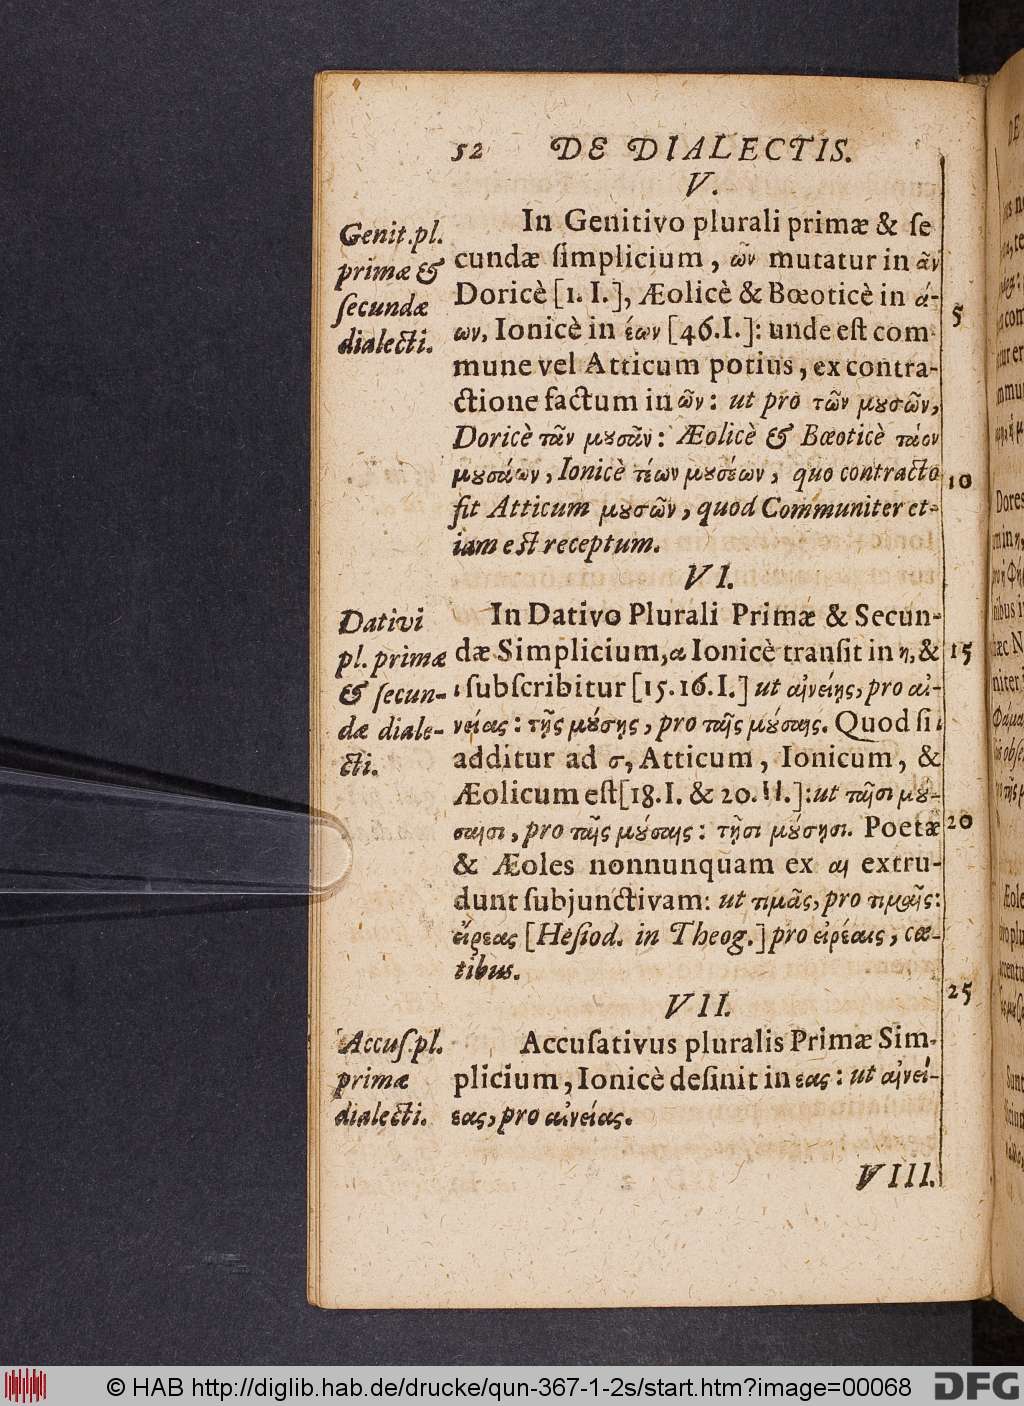 52 DE DIALECTIS.
V.
Genit. pl.
primæ &
ſecundæ
dialecti.
In Genitivo plurali primæ & ſe
cundæ ſimplicium, ῶν mutatur in ᾶν
Doricè [1. I.], Æolicè & Bœoticè in ά-
ων, Ionicè in έων [46.I.]: unde eſt com
mune vel Atticum potius, ex contra-
ctione factum in ῶν: ut pro τῶν μȣσῶν,
Doricè τᾶν μȣσᾶν: Æolicè & Bœoticè τάον
μȣσάων, Ionicè τέων μȣσέων, quo contracto
fit Atticum μȣσῶν, quod Communiter et-
iam eſt receptum.
5
10
VI.
Dativi
pl. primæ
& ſecun-
dæ diale-
cti.
In Dativo Plurali Primæ & Secun-
dæ Simplicium, α Ionicè tranſit in η, &
ι ſubſcribitur [15.16.I.] ut αἰνείῃς, pro αἰ-
νείας: τῇς μȣ́σῃς, pro ταῖς μȣ́σαις. Quod ſi ι
additur ad σ, Atticum, Ionicum, &
Æolicum eſt [18.I. & 20.II.]: ut ταῖσι μȣ́-
σαισι, pro ταῖς μȣ́σαις: τῇσι μȣ́σῃσι. Poetæ
& Æoles nonnunquam ex αι extru-
dunt ſubjunctivam: ut τιμᾶς, pro τιμαῖς:
εἴρεας [Heſiod. in Theog.] pro εἰρέαις, cœ-
tibus.
15
20
25
VII.
Accuſ. pl.
primæ
dialecti.
Accuſativus pluralis Primæ Sim-
plicium, Ionicè deſinit in εας: ut αἰνεί-
εας, pro αἰνείας.
VIII.
© HAB http://diglib.hab.de/drucke/qun-367-1-2s/start.htm?image=00068
DFG